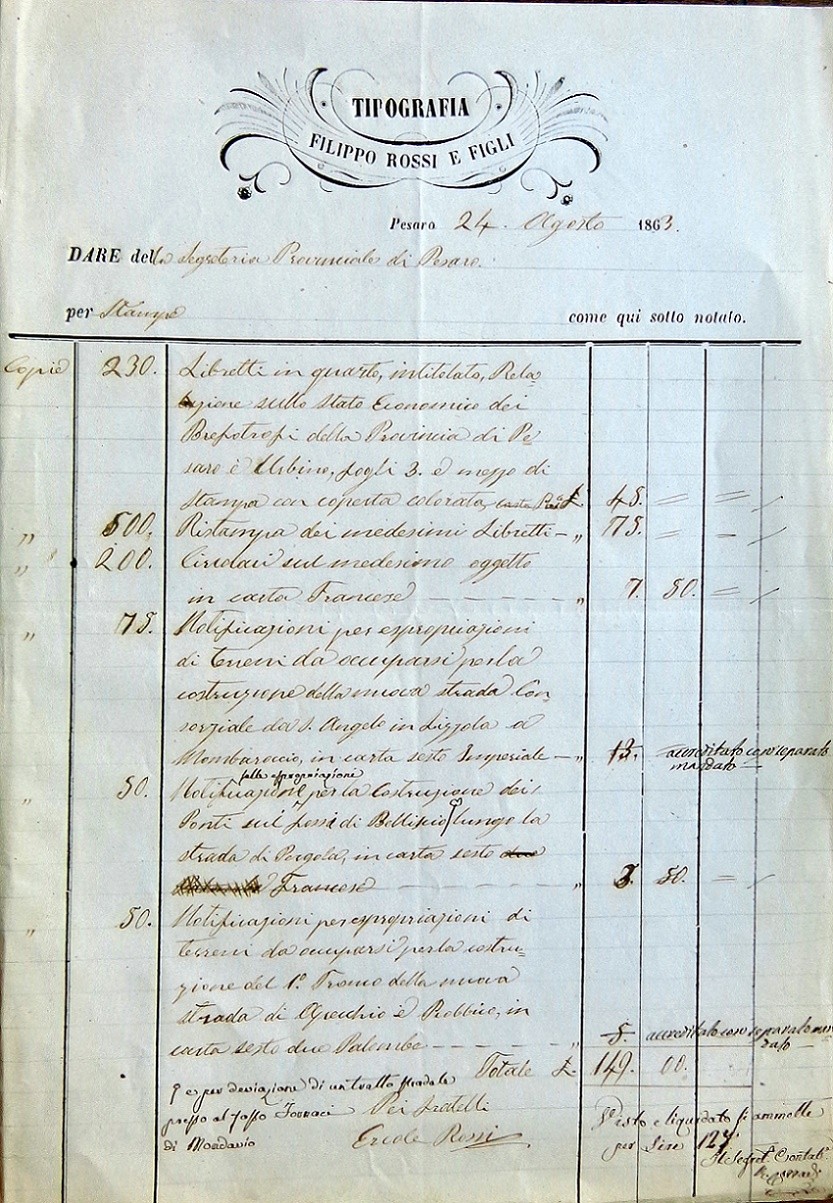 TIPOGRAFIA
FILIPPO ROSSI E FIGLI
Pesaro 24. Agosto 1863.
DARE della Segreteria Provinciale di Pesaro.
per Stampe come qui sotto notato.
Copie 230. Libretti in quarto, intitolato, Rela=
zione sullo stato Economico dei
Brefotrofi della Provincia di Pe=
saro è Urbino, fogli 3. e mezzo di
stampa con coperta colorata, £ 45. = = /
„ 500. Ristampa dei medesimi Libretti — „ 75. = - /
„ 200. Circolari sul medesimo oggetto
in carta Francese — — — — „ 7. 50. = /
„ 75. Notificazioni per espropriazioni
di terreni da occuparsi per la
costruzione della nuova strada Con=
sorziale da S. Angelo in Lizzola a
Mombaroccio, in carta sesto Imperiale — „ 13. accreditato con separato
mandato —
sulle espropriazioni
„ 50. Notificazioni per la Costruzione dei
Ponti sui fossi di Bellisio lungo la
strada di Pergola, in carta sesto due
Francese — — — — „ 3. 50. = /
„ 50. Notificazioni per espropriazioni di
terreni da occuparsi per la costru=
zione del 1.° Tronco della nuova
strada di Apecchio è Bobbico, in
carta sesto due Palombe — — — „ 5. accreditato con separato man
dato —
Totale £. 149. 00.
e per deviazione di un tratto stradale
presso al fosso Fornaci
di Mondavio
Pei fratelli
Ercole Rossi
Visto e liquidato si ammette
per Lire 127
Il Segret.